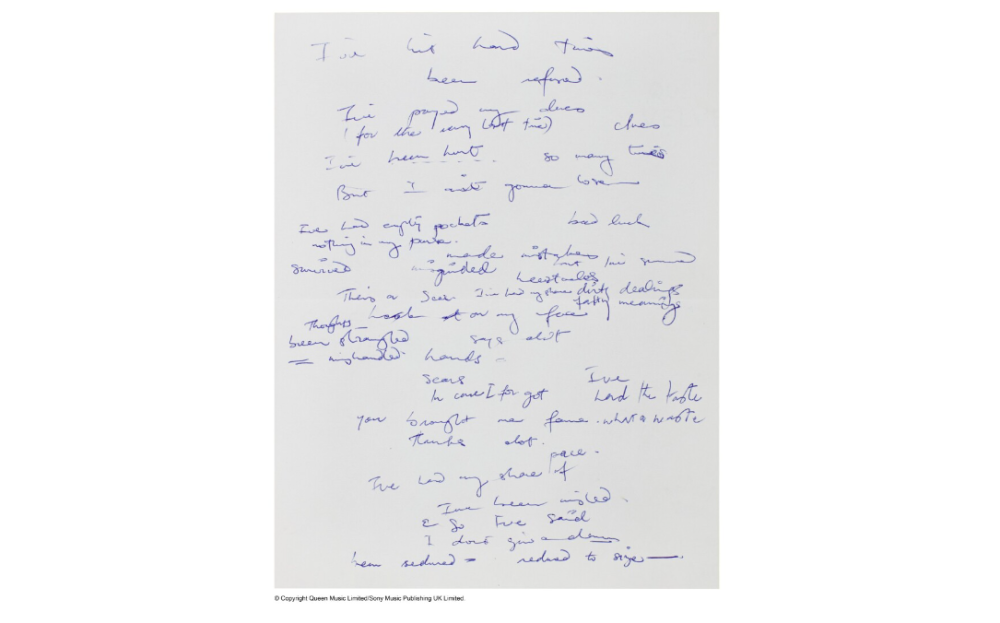 I've hit hard times
been refused.
I've payed my dues
(for the very last time) clues
I've been hurt so many times
But I aint gonna lose
I've had empty pockets bad luck
nothing in my purse.
made mistakes but I've survived
survived misguided
There's a scar I've had my share dirty dealings
look at on my face meanings
Thoughts
been strangled says alot
hands
scars I've
In case I forgot had the taste
you brought me fame. what a waste
thanks alot.
pace.
I've had my share of
I've been misled.
& so I've said
I dont give a damn
been seduced = reduced to size
© Copyright Queen Music Limited/Sony Music Publishing UK Limited.